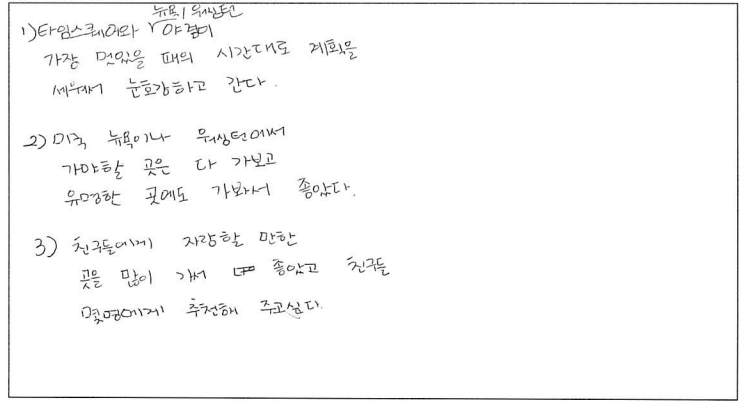 1) 타임스퀘어와 뉴욕, 워싱턴 야경이
가장 멋있을 때의 시간대로 계획을
세워서 눈호강하고 간다.
2) 미국 뉴욕이나 워싱턴에서
가야할 곳은 다 가보고
유명한 곳에도 가봐서 좋았다.
3) 친구들에게 자랑할 만한
곳을 많이 가서 좋았고 친구들
몇명에게 추천해 주고싶다.